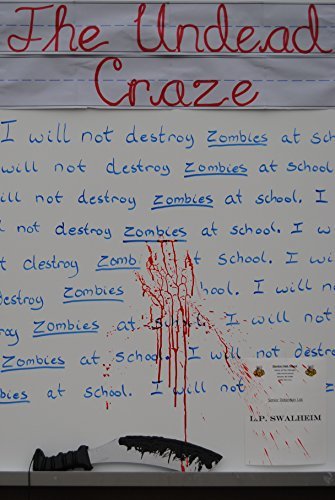 The Undead
Craze
I will not destroy zombies at sc
will not destroy zombies at school
ill not destroy zombies at school.
not destroy zombies at school. I
t destroy zomb t school. I wi
estroy zombies hool. I will n
oy zombies at school. I will not
zombies at school. I will not destro
bies at school. I will not
Senior Detention List
L.P. SWALHEIM